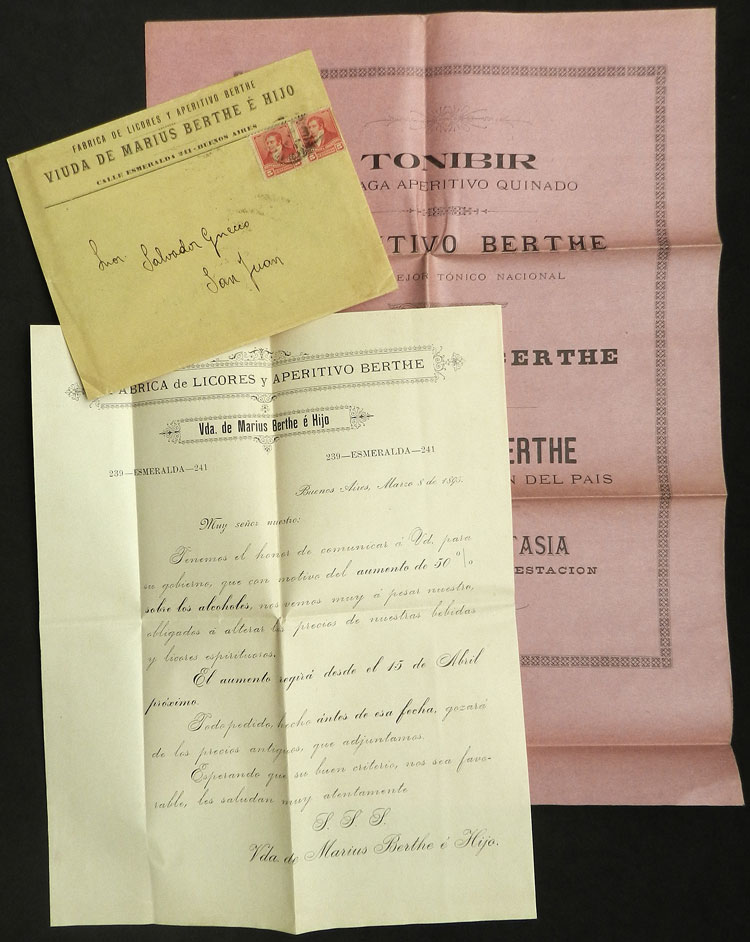 FABRICA DE LICORES Y APERITIVO BERTHE
VIUDA DE MARIUS BERTHE É HIJO
CALLE ESMERALDA 241-BUENOS AIRES
Salvador
San Juan
TONIBIR
APERITIVO QUINADO
BERTHE
TÓNICO NACIONAL
BERTHE
BERTHE
DEL PAIS
ESTACION
FABRICA de LICORES y APERITIVO BERTHE
Vda. de Marius Berthe é Hijo
239—ESMERALDA—241
239—ESMERALDA—241
Buenos Aires, Marzo 8 de 1895.
Muy señor nuestro:
Tenemos el honor de comunicar á Vd. para
su gobierno, que con motivo del aumento de 50 %
sobre los alcoholes, nos vemos muy á pesar nuestro,
obligados á alterar los precios de nuestras bebidas
y licores espirituosos.
El aumento regirá desde el 15 de Abril
próximo.
Todo pedido, hecho ántes de esa fecha, gozará
de los precios antiguos, que adjuntamos.
Esperando que su buen criterio, nos sea favo-
rable, les saludan muy atentamente
S. S. S.
Vda. de Marius Berthe é Hijo.